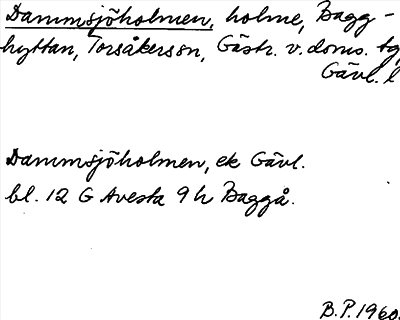 Dammsjöholmen, holme, Bagg-
hyttan, Torsåkers sn, Gästr. v. doms. tg
Gävl. l
Dammsjöholmen, ek Gävl.
bl. 12 G Avesta 9 h Baggå.
B.P. 1960.